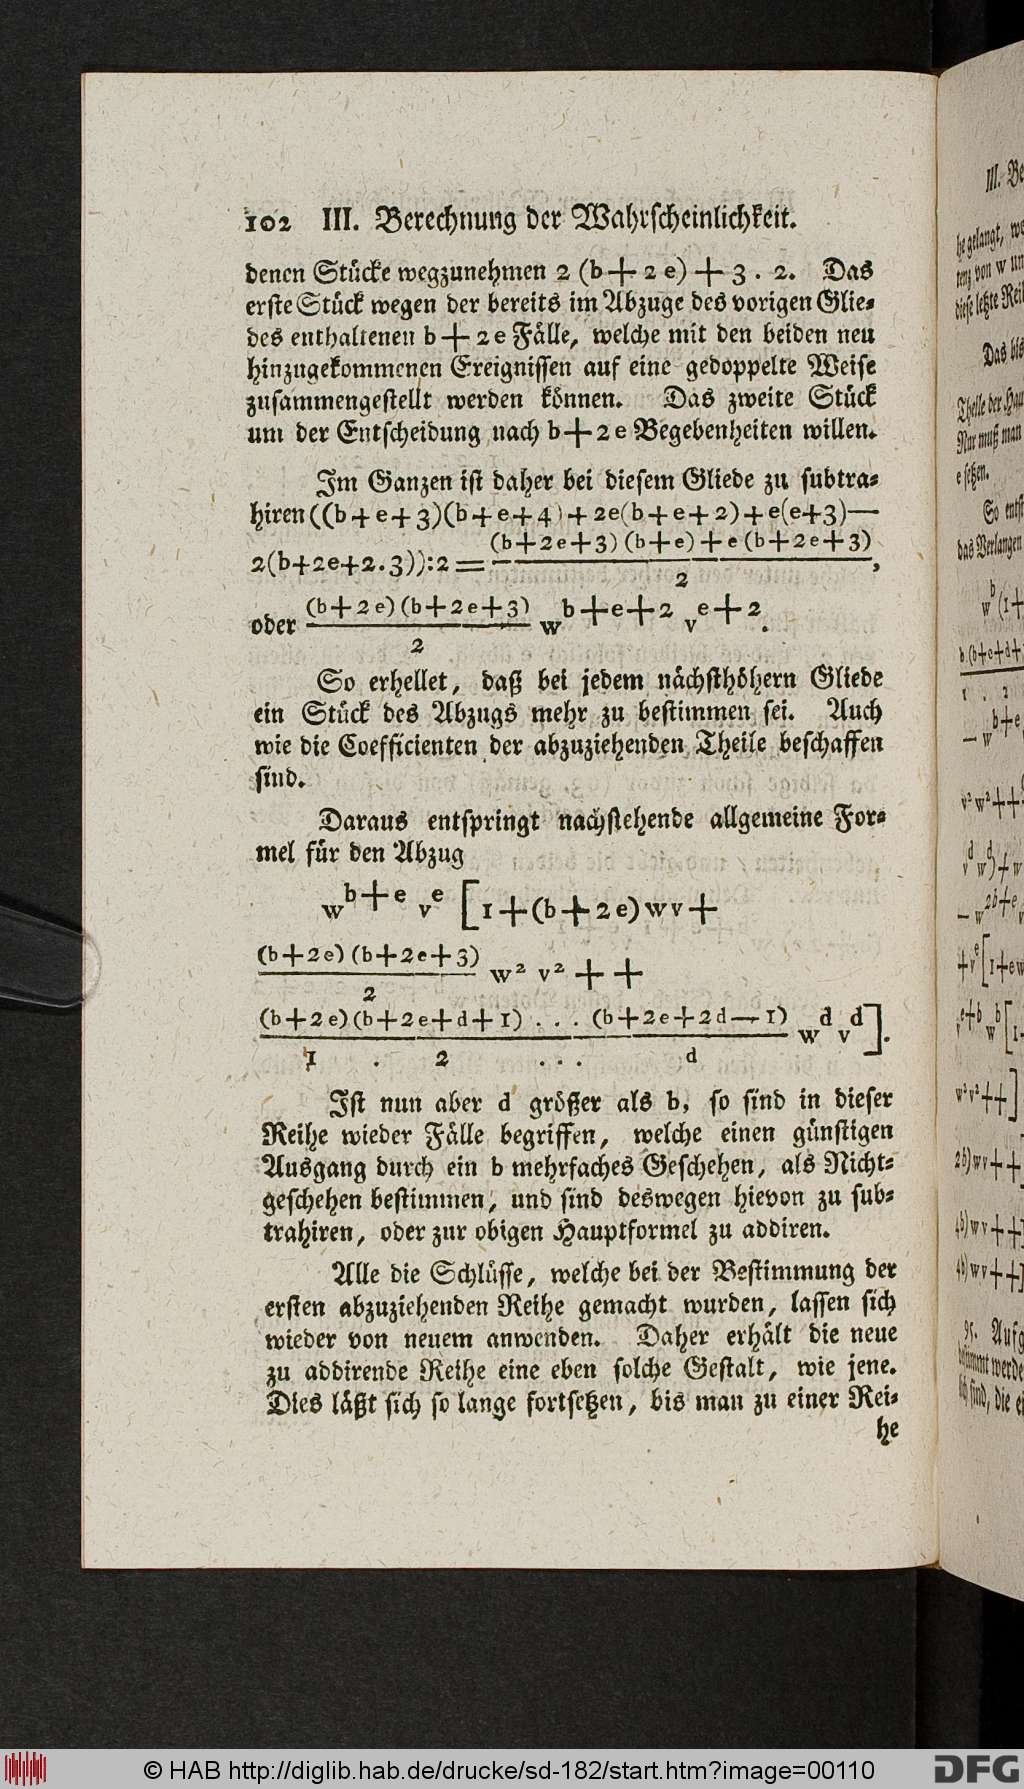 102 III. Berechnung der Wahrscheinlichkeit.
denen Stücke wegzunehmen 2 (b + 2 e) + 3 . 2. Das
erste Stück wegen der bereits im Abzuge des vorigen Glie-
des enthaltenen b + 2 e Fälle, welche mit den beiden neu
hinzugekommenen Ereignissen auf eine gedoppelte Weise
zusammengestellt werden können. Das zweite Stück
um der Entscheidung nach b + 2 e Begebenheiten willen.
Im Ganzen ist daher bei diesem Gliede zu subtra-
hiren ((b + e + 3)(b + e + 4) + 2e(b + e + 2) + e(e+3) —
2(b+2e+2.3)):2 = (b+2e+3) (b+e) + e (b+2e+3) / 2,
oder (b+2e) (b+2e+3) / 2 w^{b+e+2} v^{e+2}.
So erhellet, daß bei jedem nächsthöhern Gliede
ein Stück des Abzugs mehr zu bestimmen sei. Auch
wie die Coefficienten der abzuziehenden Theile beschaffen
sind.
Daraus entspringt nachstehende allgemeine For-
mel für den Abzug
w^{b+e} v^{e} [1 + (b + 2e) w v +
(b+2e) (b+2e+3) / 2 w² v² + +
(b+2e) (b+2e+d+1) . . . (b+2e+2d—1) / 1 . 2 . . . d w^{d} v^{d}].
Ist nun aber d größer als b, so sind in dieser
Reihe wieder Fälle begriffen, welche einen günstigen
Ausgang durch ein b mehrfaches Geschehen, als Nicht-
geschehen bestimmen, und sind deswegen hievon zu sub-
trahiren, oder zur obigen Hauptformel zu addiren.
Alle die Schlüsse, welche bei der Bestimmung der
ersten abzuziehenden Reihe gemacht wurden, lassen sich
wieder von neuem anwenden. Daher erhält die neue
zu addirende Reihe eine eben solche Gestalt, wie jene.
Dies läßt sich so lange fortsetzen, bis man zu einer Rei-
he
© HAB http://diglib.hab.de/drucke/sd-182/start.htm?image=00110
DFG